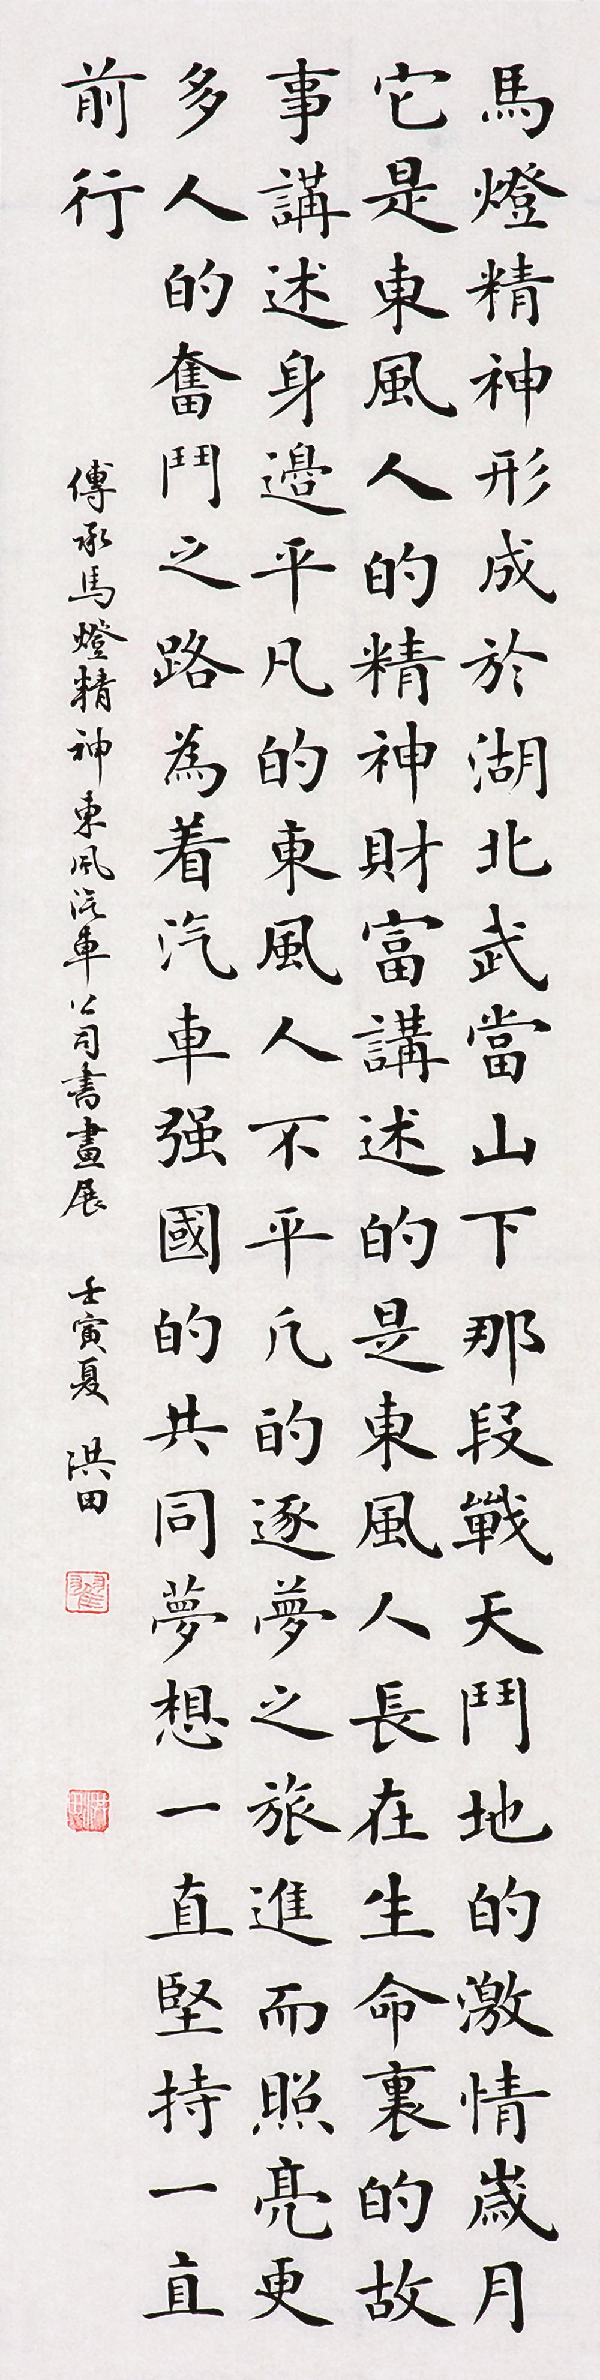 馬燈精神形成於湖北武當山下那段戰天鬥地的激情歲月
它是東風人的精神財富講述的是東風人長在生命裏的故
事講述身邊平凡的東風人不平凡的逐夢之旅進而照亮更
多人的奮鬥之路為着汽車强國的共同夢想一直堅持一直
前行
傳承馬燈精神東風汽車公司書畫展 壬寅夏 洪田
翟
洪田